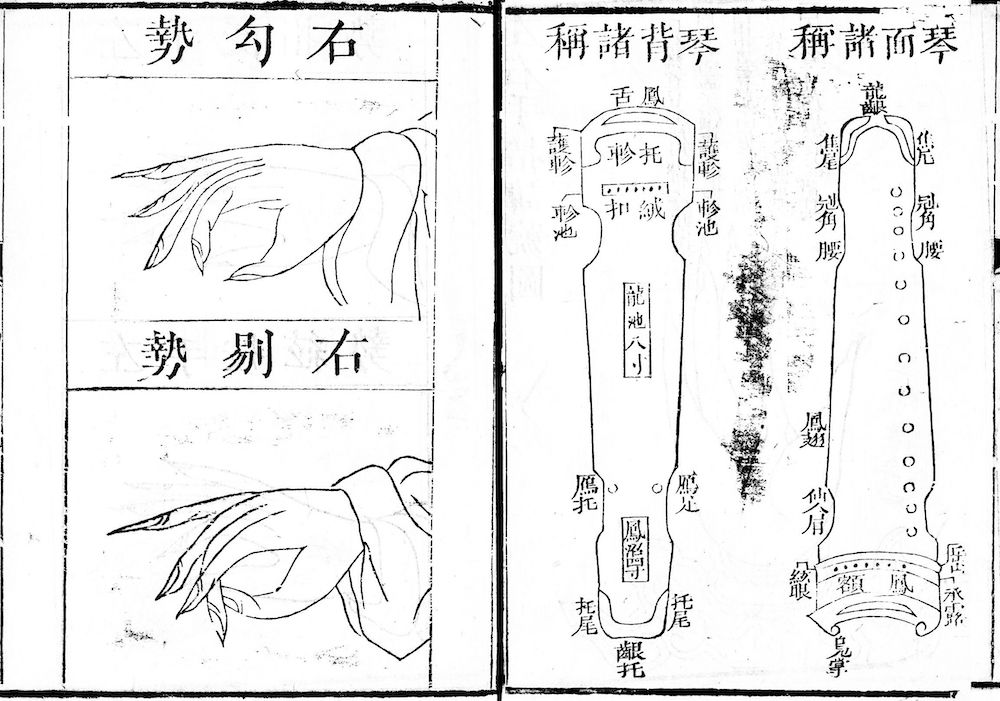 琴面諸稱
龍齦
焦尾
焦尾
冠角
冠角
腰
腰
鳳翅
仙人肩
岳山
承露
絃眼
鳳額
琴背諸稱
鳳舌
護軫
護軫
托軫
絨扣
軫池
軫池
龍池八寸
鴈足
鴈托
鳳沼四寸
托尾
托尾
齦托
右勾勢
右剔勢